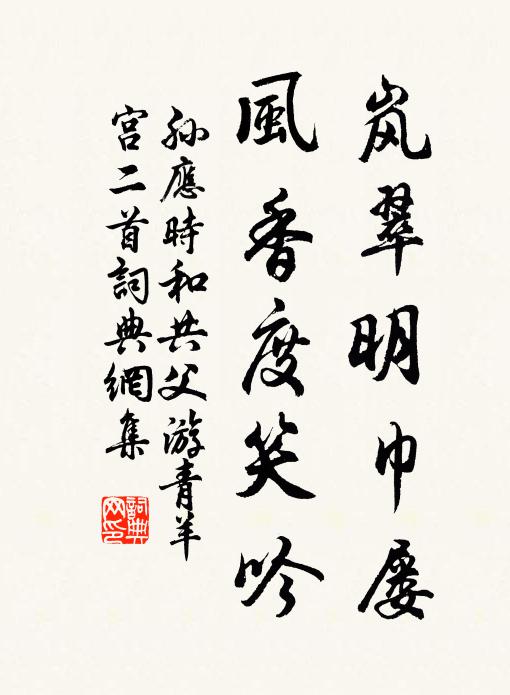 岚翠明巾屦
風香度笑吟
孙應時和共父游青羊
宫二首詞典網集
詞典网印